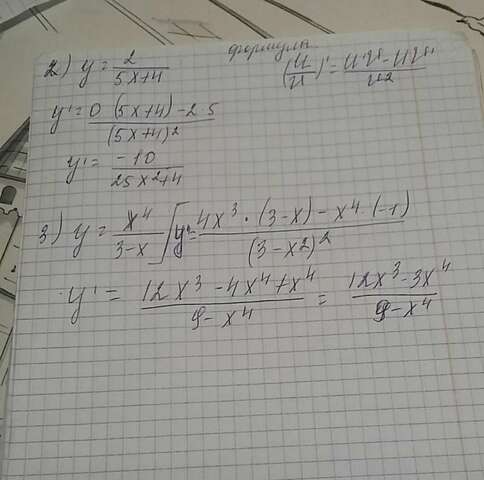 формулы
2) y = 2/(5x+4)
(u/v)' = (u'v - uv')/v2
y' = (0 (5x+4) - 2·5)/(5x+4)²
y' = -10/(25x²+4)
3) y = x⁴/(3-x) ] y' = (4x³ · (3-x) - x⁴ · (-1))/(3-x2)²
y' = (12x³ - 4x⁴ + x⁴)/(9-x⁴) = (12x³ - 3x⁴)/(9-x⁴)